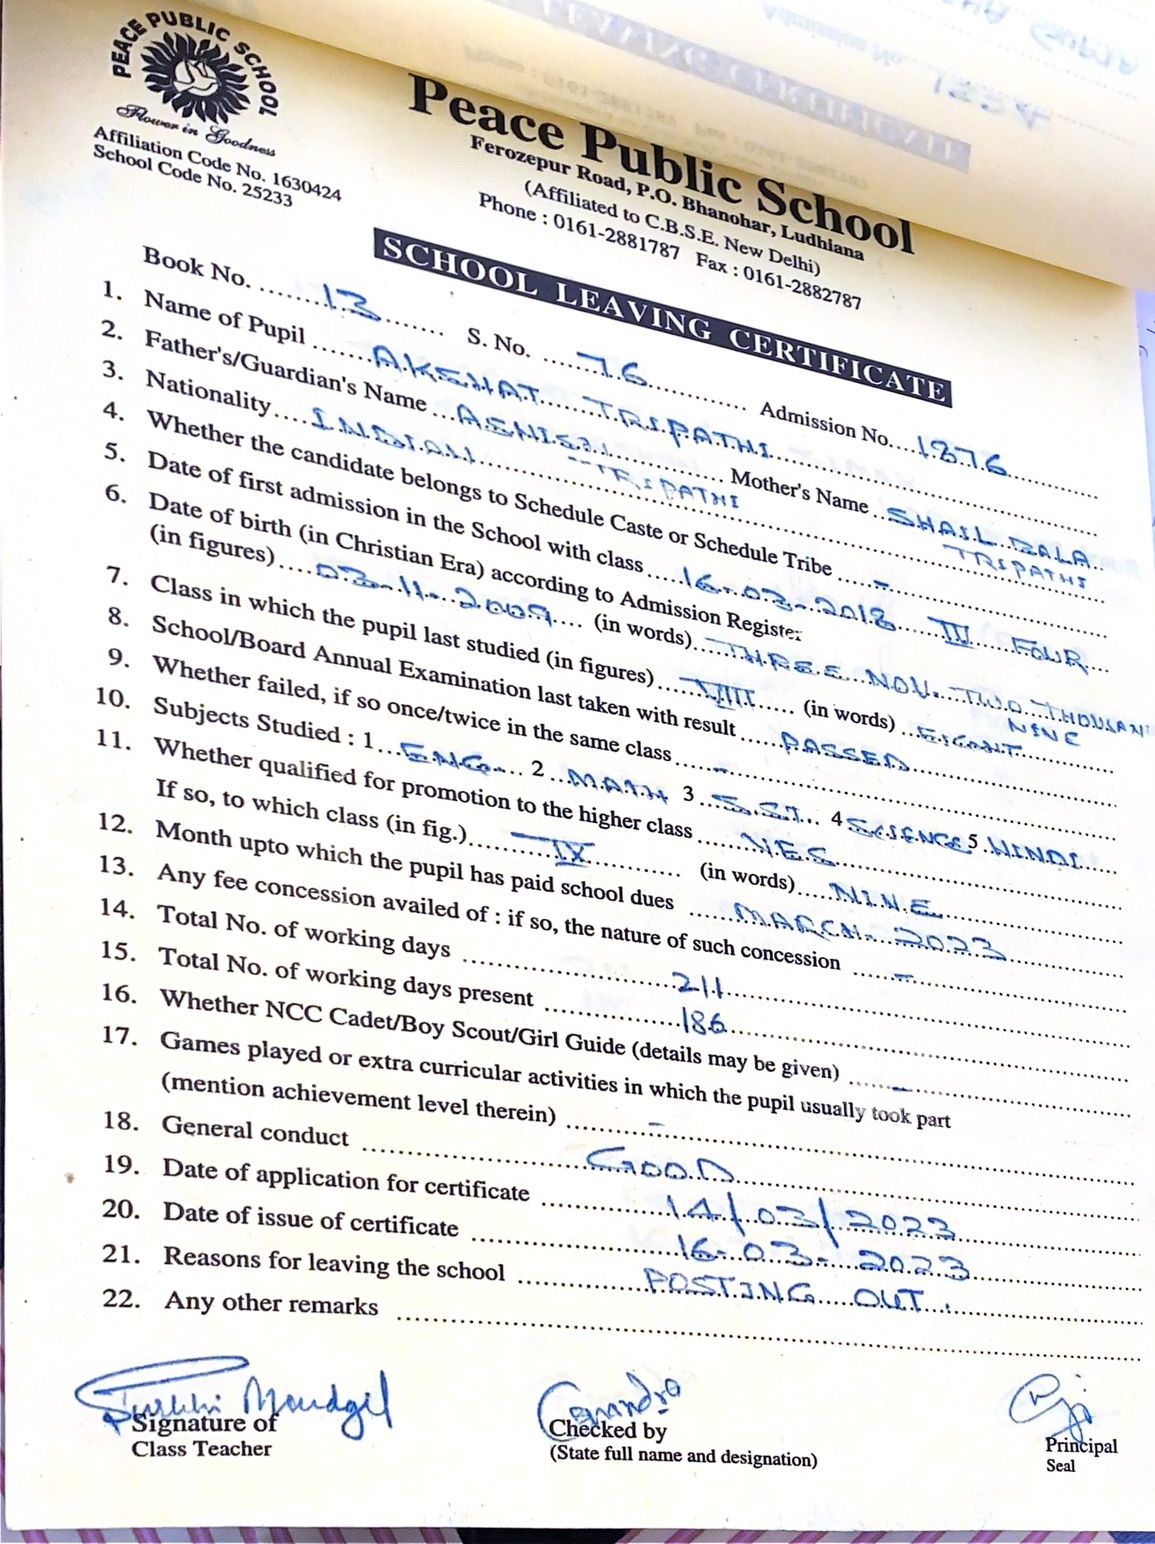 PEACE PUBLIC SCHOOL
Flower in Goodness
Affiliation Code No. 1630424
School Code No. 25233
Peace Public School
Ferozepur Road, P.O. Bhanohar, Ludhiana
(Affiliated to C.B.S.E. New Delhi)
Phone : 0161-2881787 Fax : 0161-2882787
SCHOOL LEAVING CERTIFICATE
Book No. 13 S. No. 76 Admission No. 1876
1. Name of Pupil AKSHAT TRIPATHI
2. Father's/Guardian's Name ASHISH TRIPATHI Mother's Name SHAIL BALA TRIPATHI
3. Nationality INDIAN
4. Whether the candidate belongs to Schedule Caste or Schedule Tribe -
5. Date of first admission in the School with class 16-03-2018 IV FOUR
6. Date of birth (in Christian Era) according to Admission Register
(in figures) 03-11-2009 (in words) THREE NOV. TWO THOUSAN NINE
7. Class in which the pupil last studied (in figures) VIII (in words) EIGHT
8. School/Board Annual Examination last taken with result PASSED
9. Whether failed, if so once/twice in the same class -
10. Subjects Studied : 1 ENG 2 MATH 3 S.ST 4 SCIENCE 5 HINDI
11. Whether qualified for promotion to the higher class YES
If so, to which class (in fig.) IX (in words) NINE
12. Month upto which the pupil has paid school dues MARCH-2023
13. Any fee concession availed of : if so, the nature of such concession -
14. Total No. of working days 211
15. Total No. of working days present 186
16. Whether NCC Cadet/Boy Scout/Girl Guide (details may be given) -
17. Games played or extra curricular activities in which the pupil usually took part
(mention achievement level therein) -
18. General conduct GOOD
19. Date of application for certificate 14/03/2023
20. Date of issue of certificate 16-03-2023
21. Reasons for leaving the school POSTING OUT.
22. Any other remarks
Surbhi Moudgil
Signature of
Class Teacher
Checked by
(State full name and designation)
Principal
Seal